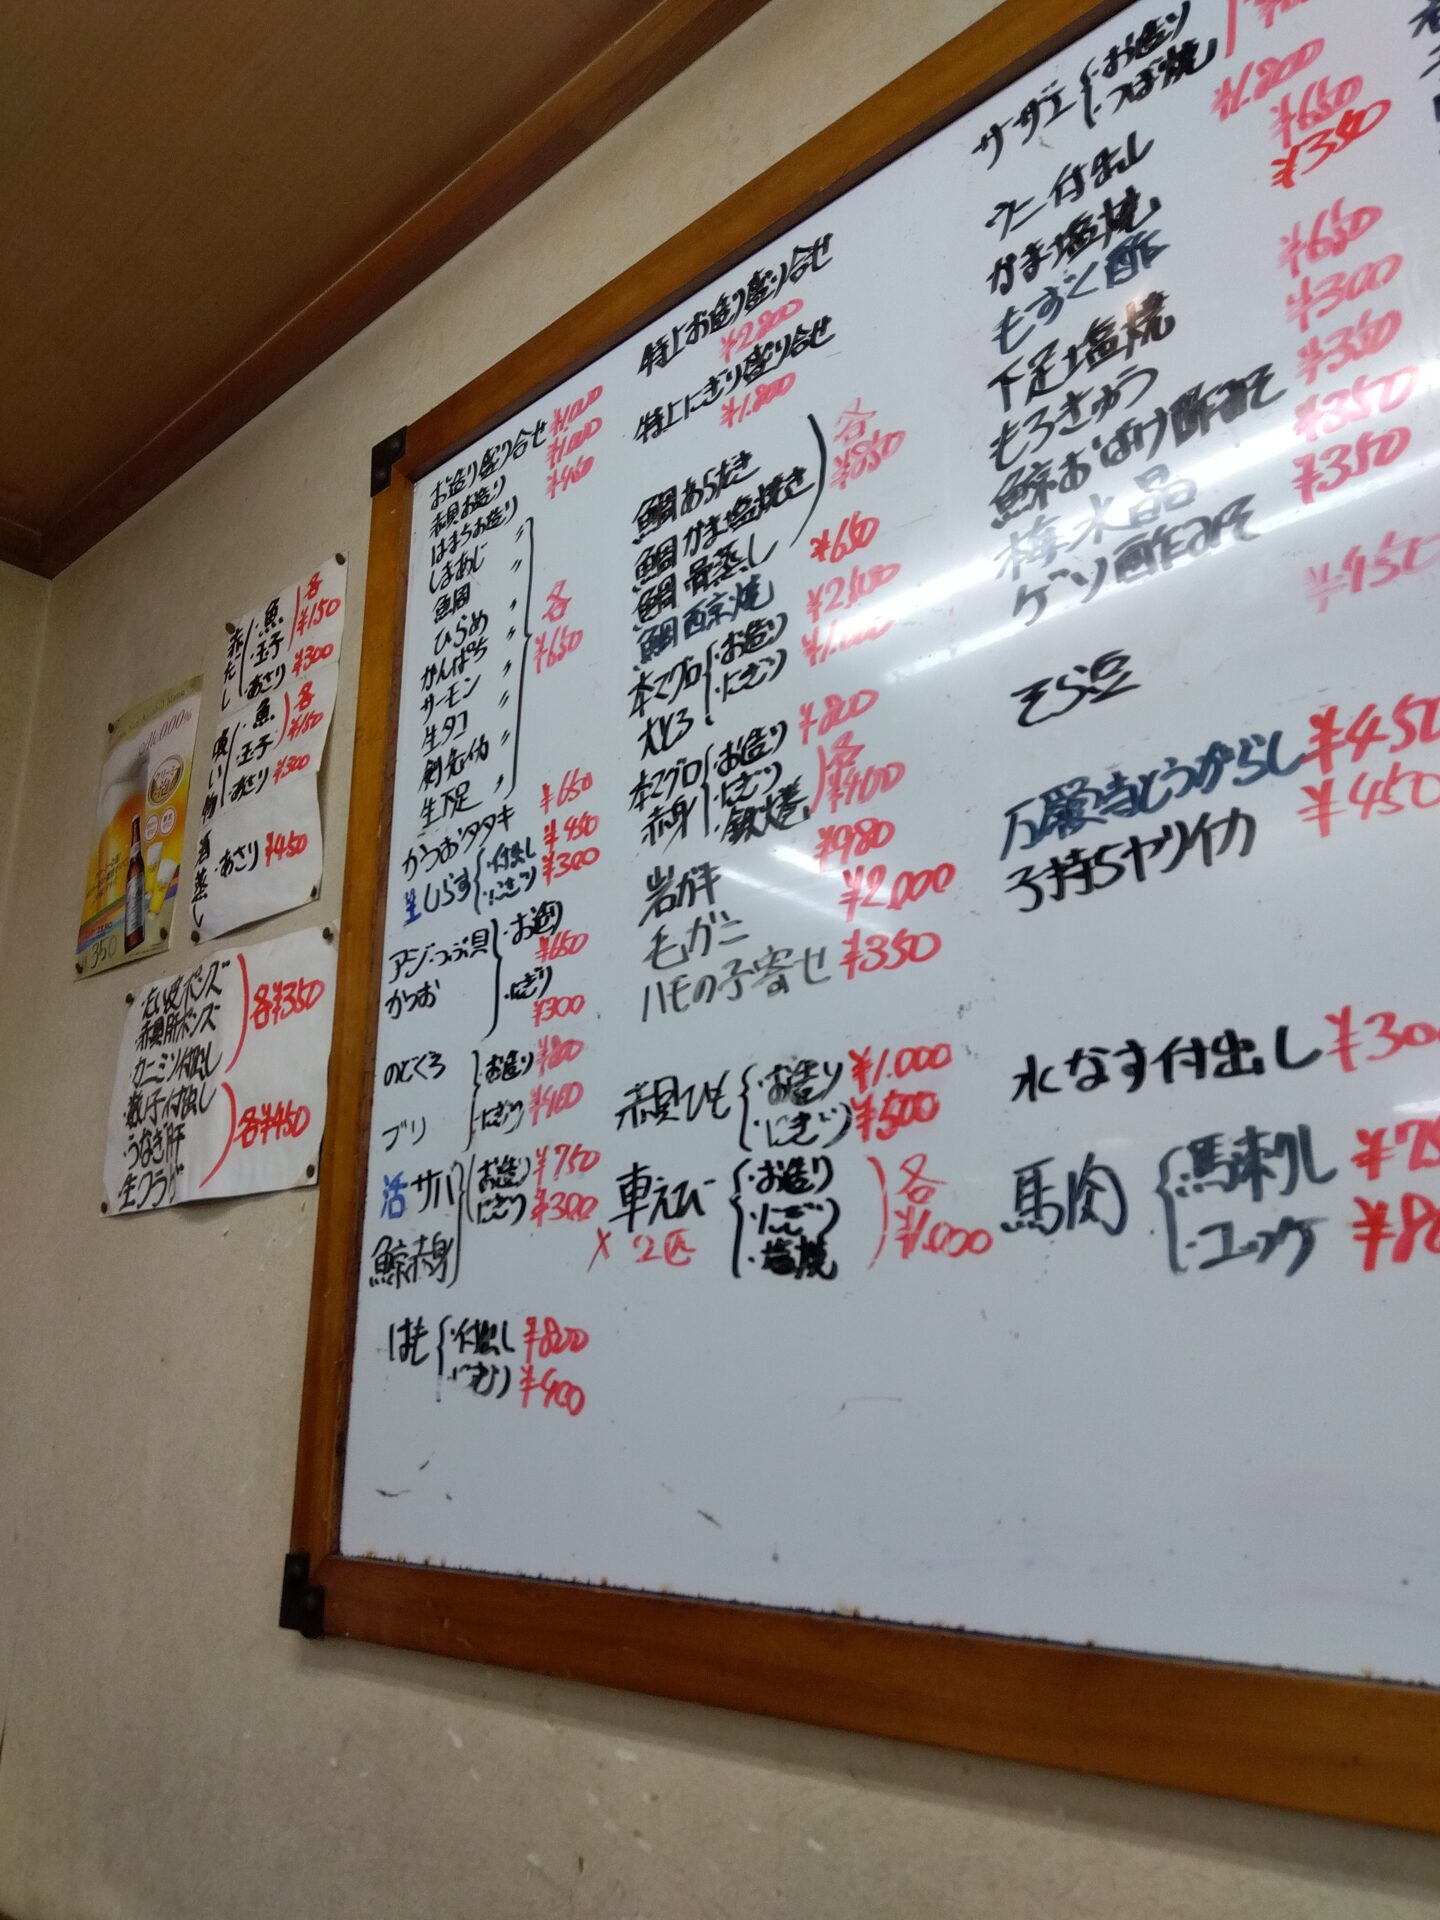 赤だし
・魚
・玉子
各¥150
・あさり ¥300
吸い物
・魚
・玉子
各¥150
・あさり ¥300
酒蒸し
・あさり ¥450
350
赤貝肝ポンズ
各¥350
カニミソ付出し
数の子付出し
・うなぎ肝
各¥450
お造り盛り合せ
赤貝お造り
はまちお造り
しまあじ 〃
鯛 〃
ひらめ 〃
かんぱち 〃
サーモン 〃
生タコ 〃
剣先イカ 〃
生下足 〃
各
¥650
かつおタタキ ¥650
生しらす
・付出し ¥450
・にぎり ¥300
アジ・つぶ貝
かつお
・お造り
¥650
・にぎり
¥300
のどくろ
ブリ
・お造り ¥800
・にぎり ¥400
活サバ
鯨赤身
お造り ¥750
にぎり ¥300
はも
・付出し ¥800
・にぎり ¥400
特上お造り盛り合せ
¥2800
特上にぎり盛り合せ
¥1.800
鯛あらだき
鯛かま塩焼き
鯛骨蒸し
各
¥650
鯛西京焼
本マグロ
大とろ
・お造り
・にぎり
本マグロ
赤身
・お造り ¥800
・にぎり
・鉄火巻
各
¥400
岩ガキ ¥980
毛ガニ ¥2.000
ハモの子寄せ ¥350
赤貝ひも
・お造り ¥1.000
・にぎり ¥500
車えび
×2匹
・お造り
・にぎり
・塩焼
各
¥1.000
サザエ
・お造り
・つぼ焼
ウニ付出し ¥1.800
かま塩焼 ¥650
もずく酢 ¥350
下足塩焼 ¥650
もろきゅう ¥300
鯨おばけ酢みそ ¥350
梅水晶 ¥350
ゲソ酢みそ ¥350
そら豆 ¥450
万願寺とうがらし ¥450
子持ちヤリイカ ¥450
水なす付出し
馬肉
・馬刺し
・ユッケ